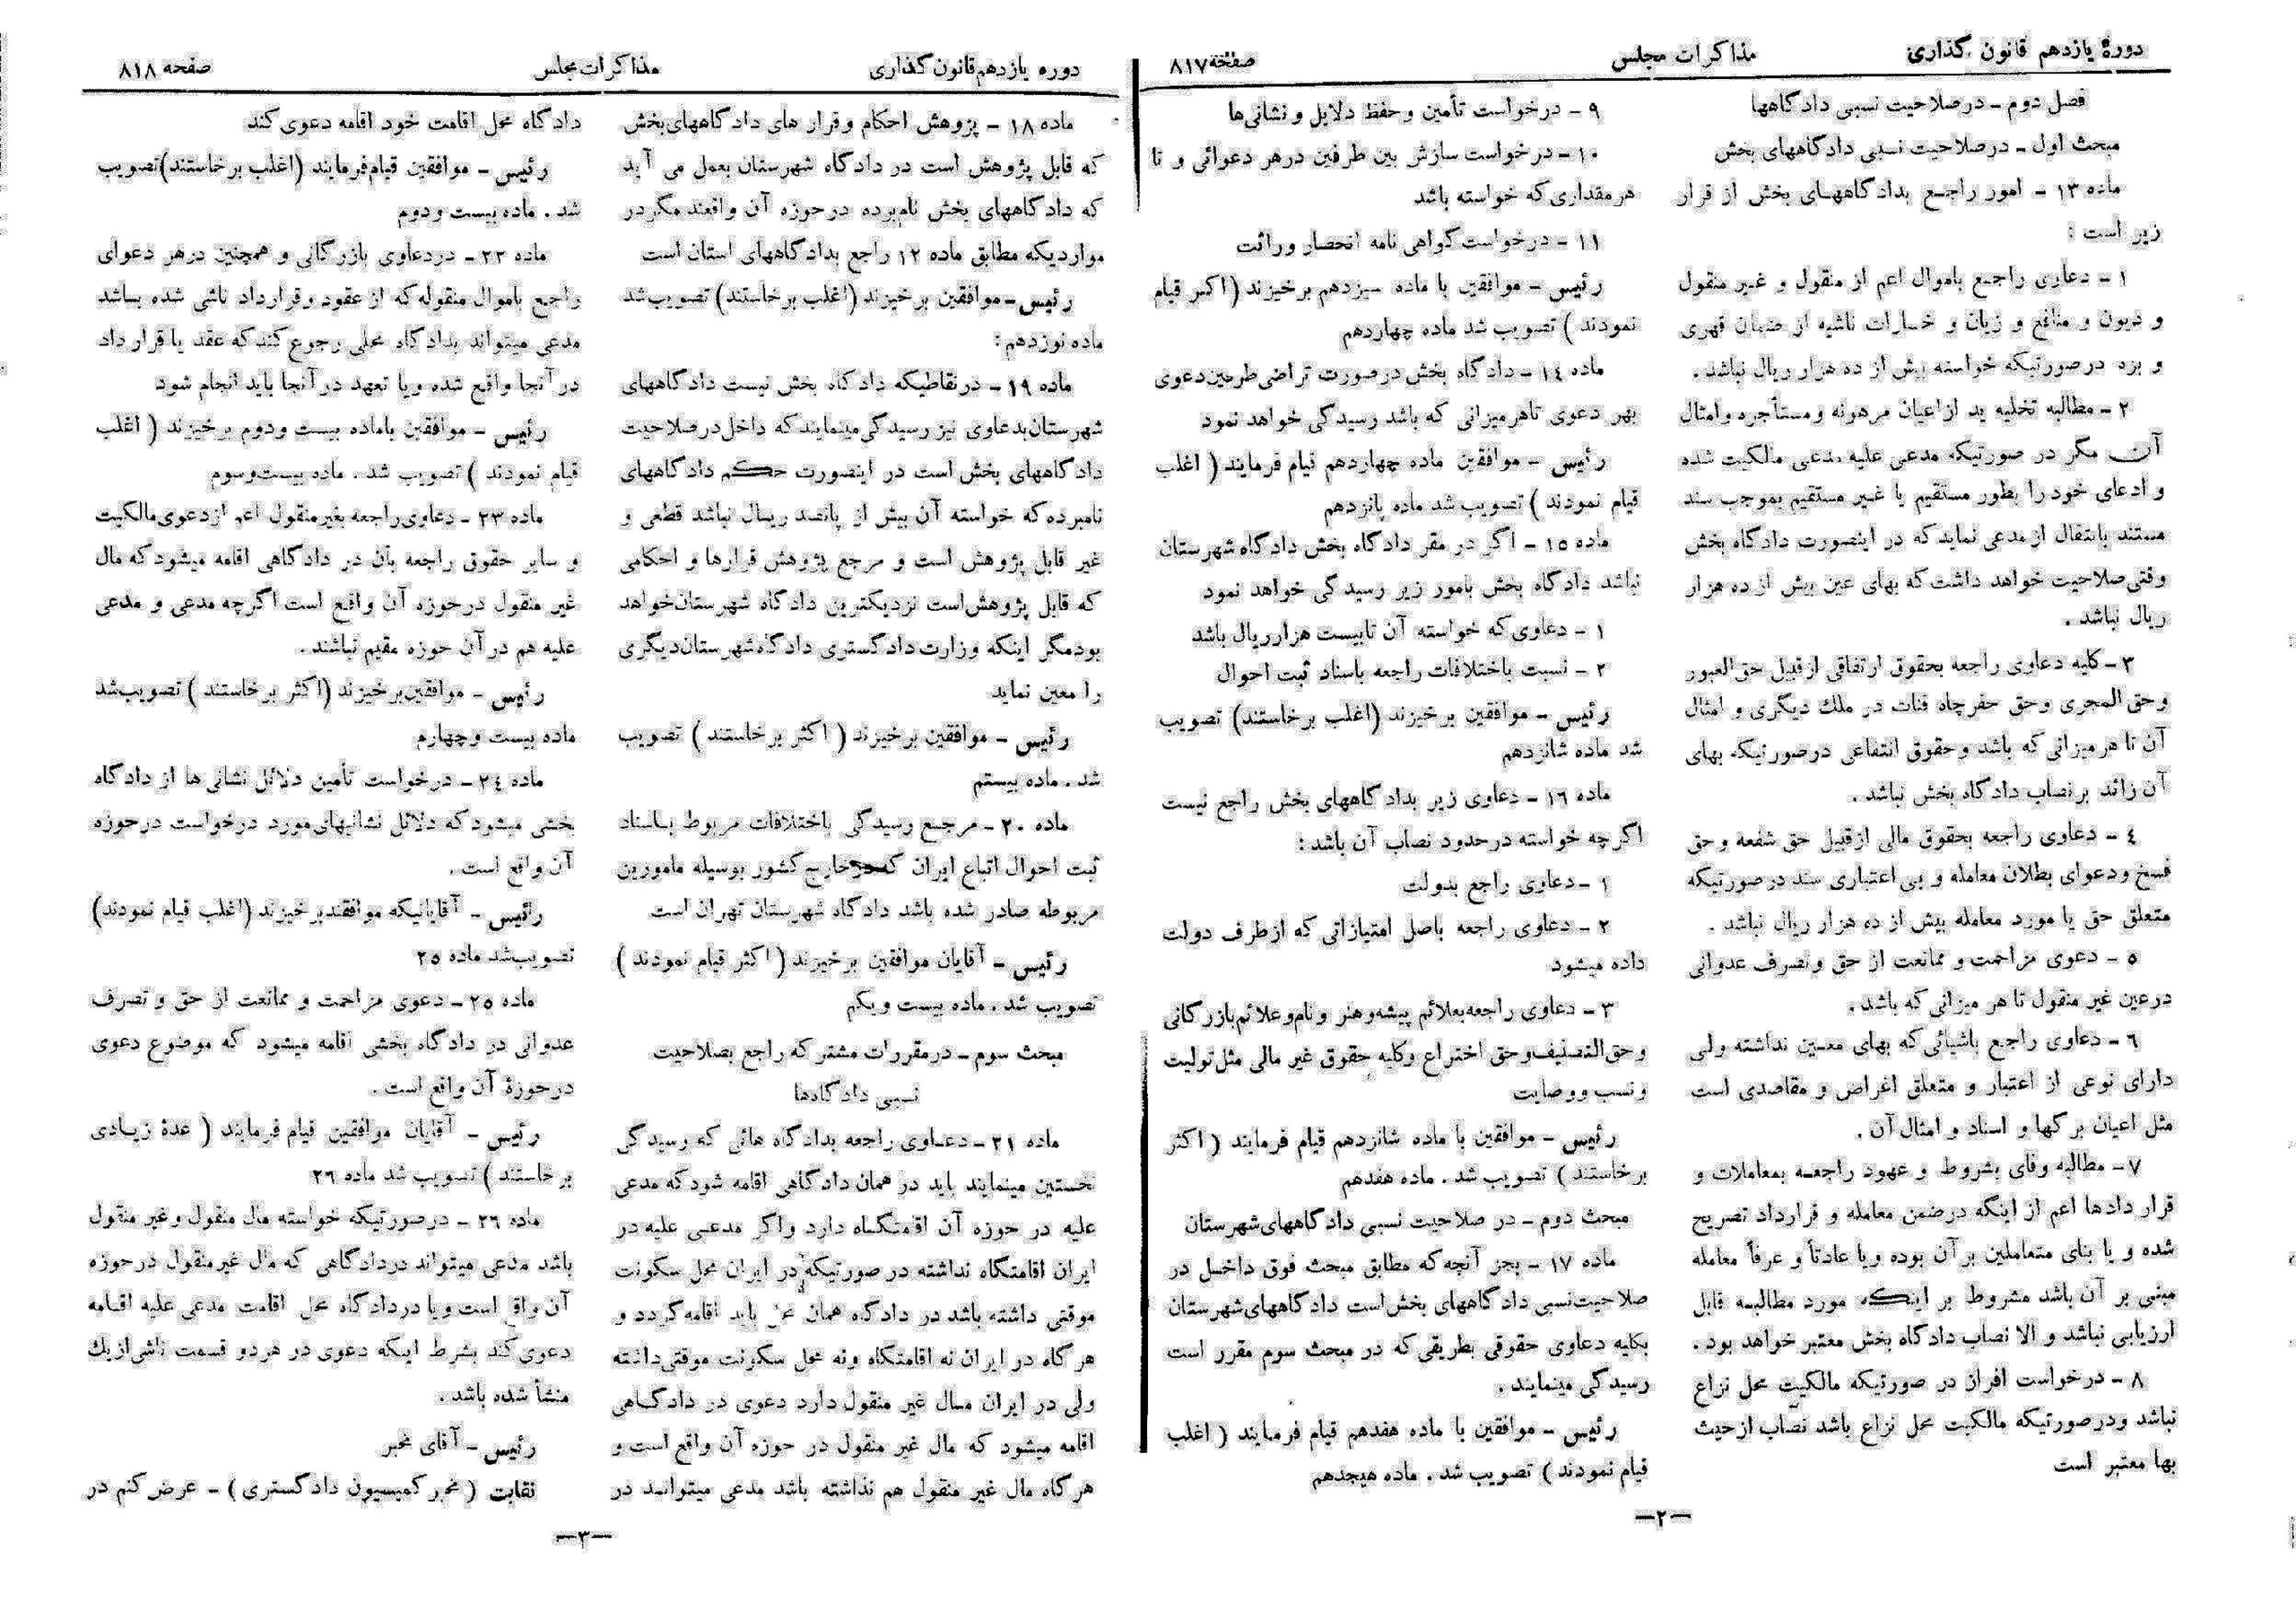 دورهٔ یازدهم قانون گذاری
مذاکرات مجلس
صفحه ۸۱۷
فصل دوم – در صلاحیت نسبی دادگاهها
مبحث اول – در صلاحیت نسبی دادگاههای بخش
ماده ۱۳ – امور راجع بدادگاههای بخش از قرار
زیر است :
۱ – دعاوی راجع باموال اعم از منقول و غیر منقول
و دیون و منافع و زیان و خسارات ناشیه از ضمان قهری
و بزه درصورتیکه خواسته بیش از ده هزار ریال نباشد .
۲ – مطالبه تخلیه ید از اعیان مرهونه و مستأجره و امثال
آن مگر در صورتیکه مدعی علیه مدعی مالکیت شده
و ادعای خود را بطور مستقیم یا غیر مستقیم بموجب سند
مستند بانتقال از مدعی نماید که در اینصورت دادگاه بخش
وقتی صلاحیت خواهد داشت که بهای عین بیش از ده هزار
ریال نباشد .
۳ – کلیه دعاوی راجعه بحقوق ارتفاقی از قبیل حق العبور
و حق المجری و حق حفر چاه قنات در ملك دیگری و امثال
آن تا هر میزانی که باشد و حقوق انتفاعی درصورتیکه بهای
آن زائد بر نصاب دادگاه بخش نباشد .
٤ – دعاوی راجعه بحقوق مالی از قبیل حق شفعه و حق
فسخ و دعوای بطلان معامله و بی اعتباری سند درصورتیکه
متعلق حق یا مورد معامله بیش از ده هزار ریال نباشد .
٥ – دعوی مزاحمت و ممانعت از حق و تصرف عدوانی
در عین غیر منقول تا هر میزانی که باشد .
٦ – دعاوی راجع باشیائی که بهای معین نداشته ولی
دارای نوعی از اعتبار و متعلق اغراض و مقاصدی است
مثل اعیان برگها و اسناد و امثال آن .
۷ – مطالبه وفای بشروط و عهود راجعه بمعاملات و
قرار دادها اعم از اینکه درضمن معامله و قرارداد تصریح
شده و یا بنای متعاملین بر آن بوده و یا عادتاً و عرفاً معامله
مبنی بر آن باشد مشروط بر اینکه مورد مطالبه قابل
ارزیابی نباشد و الا نصاب دادگاه بخش معتبر خواهد بود .
۸ – درخواست افراز در صورتیکه مالکیت محل نزاع
نباشد و درصورتیکه مالکیت محل نزاع باشد نصاب از حیث
بها معتبر است
۹ – درخواست تأمین و حفظ دلایل و نشانی‌ها
۱۰ – درخواست سازش بین طرفین در هر دعوائی و تا
هر مقداری که خواسته باشد
۱۱ – درخواست گواهی نامه انحصار وراثت
رئیس – موافقین با ماده سیزدهم برخیزند (اکثر قیام
نمودند ) تصویب شد ماده چهاردهم
ماده ۱٤ – دادگاه بخش درصورت تراضی طرفین دعوی
بهر دعوی تا هر میزانی که باشد رسیدگی خواهد نمود
رئیس – موافقین ماده چهاردهم قیام فرمایند ( اغلب
قیام نمودند ) تصویب شد ماده پانزدهم
ماده ۱٥ – اگر در مقر دادگاه بخش دادگاه شهرستان
نباشد دادگاه بخش بامور زیر رسیدگی خواهد نمود
۱ – دعاوی که خواسته آن تا بیست هزار ریال باشد
۲ – نسبت باختلافات راجعه باسناد ثبت احوال
رئیس – موافقین برخیزند (اغلب برخاستند) تصویب
شد ماده شانزدهم
ماده ۱٦ – دعاوی زیر بدادگاههای بخش راجع نیست
اگرچه خواسته در حدود نصاب آن باشد :
۱ – دعاوی راجع بدولت
۲ – دعاوی راجعه باصل امتیازاتی که از طرف دولت
داده میشود
۳ – دعاوی راجعه بعلائم پیشه و هنر و نام و علائم بازرگانی
و حق التصنیف و حق اختراع و کلیه حقوق غیر مالی مثل تولیت
و نسب و وصایت
رئیس – موافقین با ماده شانزدهم قیام فرمایند ( اکثر
برخاستند ) تصویب شد . ماده هفدهم
مبحث دوم – در صلاحیت نسبی دادگاههای شهرستان
ماده ۱۷ – بجز آنچه که مطابق مبحث فوق داخل در
صلاحیت نسبی دادگاههای بخش است دادگاههای شهرستان
بکلیه دعاوی حقوقی بطریقی که در مبحث سوم مقرر است
رسیدگی مینمایند .
رئیس – موافقین با ماده هفدهم قیام فرمایند ( اغلب
قیام نمودند ) تصویب شد . ماده هیجدهم
–۲–
دوره یازدهم قانون گذاری
مذاکرات مجلس
صفحه ۸۱۸
ماده ۱۸ – پژوهش احکام و قرار های دادگاههای بخش
که قابل پژوهش است در دادگاه شهرستان بعمل می آید
که دادگاههای بخش نامبرده درحوزه آن واقعند مگر در
مواردیکه مطابق ماده ۱۲ راجع بدادگاههای استان است
رئیس – موافقین برخیزند (اغلب برخاستند) تصویب شد
ماده نوزدهم :
ماده ۱۹ – در نقاطیکه دادگاه بخش نیست دادگاههای
شهرستان بدعاوی نیز رسیدگی مینمایند که داخل در صلاحیت
دادگاههای بخش است در اینصورت حکم دادگاههای
نامبرده که خواسته آن بیش از پانصد ریال نباشد قطعی و
غیر قابل پژوهش است و مرجع پژوهش قرارها و احکامی
که قابل پژوهش است نزدیکترین دادگاه شهرستان خواهد
بود مگر اینکه وزارت دادگستری دادگاه شهرستان دیگری
را معین نماید
رئیس – موافقین برخیزند ( اکثر برخاستند ) تصویب
شد . ماده بیستم
ماده ۲۰ – مرجع رسیدگی باختلافات مربوط باسناد
ثبت احوال اتباع ایران که در خارج کشور بوسیله مامورین
مربوطه صادر شده باشد دادگاه شهرستان تهران است
رئیس – آقایان موافقین برخیزند ( اکثر قیام نمودند )
تصویب شد . ماده بیست و یکم
مبحث سوم – در مقررات مشترکه راجع بصلاحیت
نسبی دادگاهها
ماده ۲۱ – دعاوی راجعه بدادگاه هائی که رسیدگی
نخستین مینمایند باید در همان دادگاهی اقامه شود که مدعی
علیه در حوزه آن اقامتگاه دارد و اگر مدعی علیه در
ایران اقامتگاه نداشته در صورتیکه در ایران محل سکونت
موقتی داشته باشد در دادگاه همان محل باید اقامه گردد و
هرگاه در ایران نه اقامتگاه و نه محل سکونت موقتی داشته
ولی در ایران مال غیر منقول دارد دعوی در دادگاهی
اقامه میشود که مال غیر منقول در حوزه آن واقع است و
هرگاه مال غیر منقول هم نداشته باشد مدعی میتواند در
دادگاه محل اقامت خود اقامه دعوی کند
رئیس – موافقین قیام فرمایند (اغلب برخاستند) تصویب
شد . ماده بیست و دوم
ماده ۲۲ – در دعاوی بازرگانی و همچنین در هر دعوای
راجع باموال منقوله که از عقود و قرارداد ناشی شده باشد
مدعی میتواند بدادگاه محلی رجوع کند که عقد یا قرار داد
در آنجا واقع شده و یا تعهد در آنجا باید انجام شود
رئیس – موافقین با ماده بیست و دوم برخیزند ( اغلب
قیام نمودند ) تصویب شد . ماده بیست و سوم
ماده ۲۳ – دعاوی راجعه بغیر منقول اعم از دعوی مالکیت
و سایر حقوق راجعه بآن در دادگاهی اقامه میشود که مال
غیر منقول در حوزه آن واقع است اگرچه مدعی و مدعی
علیه هم در آن حوزه مقیم نباشند .
رئیس – موافقین برخیزند (اکثر برخاستند ) تصویب شد
ماده بیست و چهارم
ماده ۲٤ – درخواست تأمین دلائل نشانی ها از دادگاه
بخشی میشود که دلائل نشانیهای مورد درخواست در حوزه
آن واقع است .
رئیس – آقایانیکه موافقند برخیزند (اغلب قیام نمودند)
تصویب شد ماده ۲٥
ماده ۲٥ – دعوی مزاحمت و ممانعت از حق و تصرف
عدوانی در دادگاه بخشی اقامه میشود که موضوع دعوی
در حوزهٔ آن واقع است .
رئیس – آقایان موافقین قیام فرمایند ( عدهٔ زیادی
برخاستند ) تصویب شد ماده ۲٦
ماده ۲٦ – درصورتیکه خواسته مال منقول و غیر منقول
باشد مدعی میتواند در دادگاهی که مال غیر منقول در حوزه
آن واقع است و یا در دادگاه محل اقامت مدعی علیه اقامه
دعوی کند بشرط اینکه دعوی در هر دو قسمت ناشی از یك
منشأ شده باشد .
رئیس – آقای مخبر
نقابت ( مخبر کمیسیون دادگستری ) – عرض کنم در
–۳–